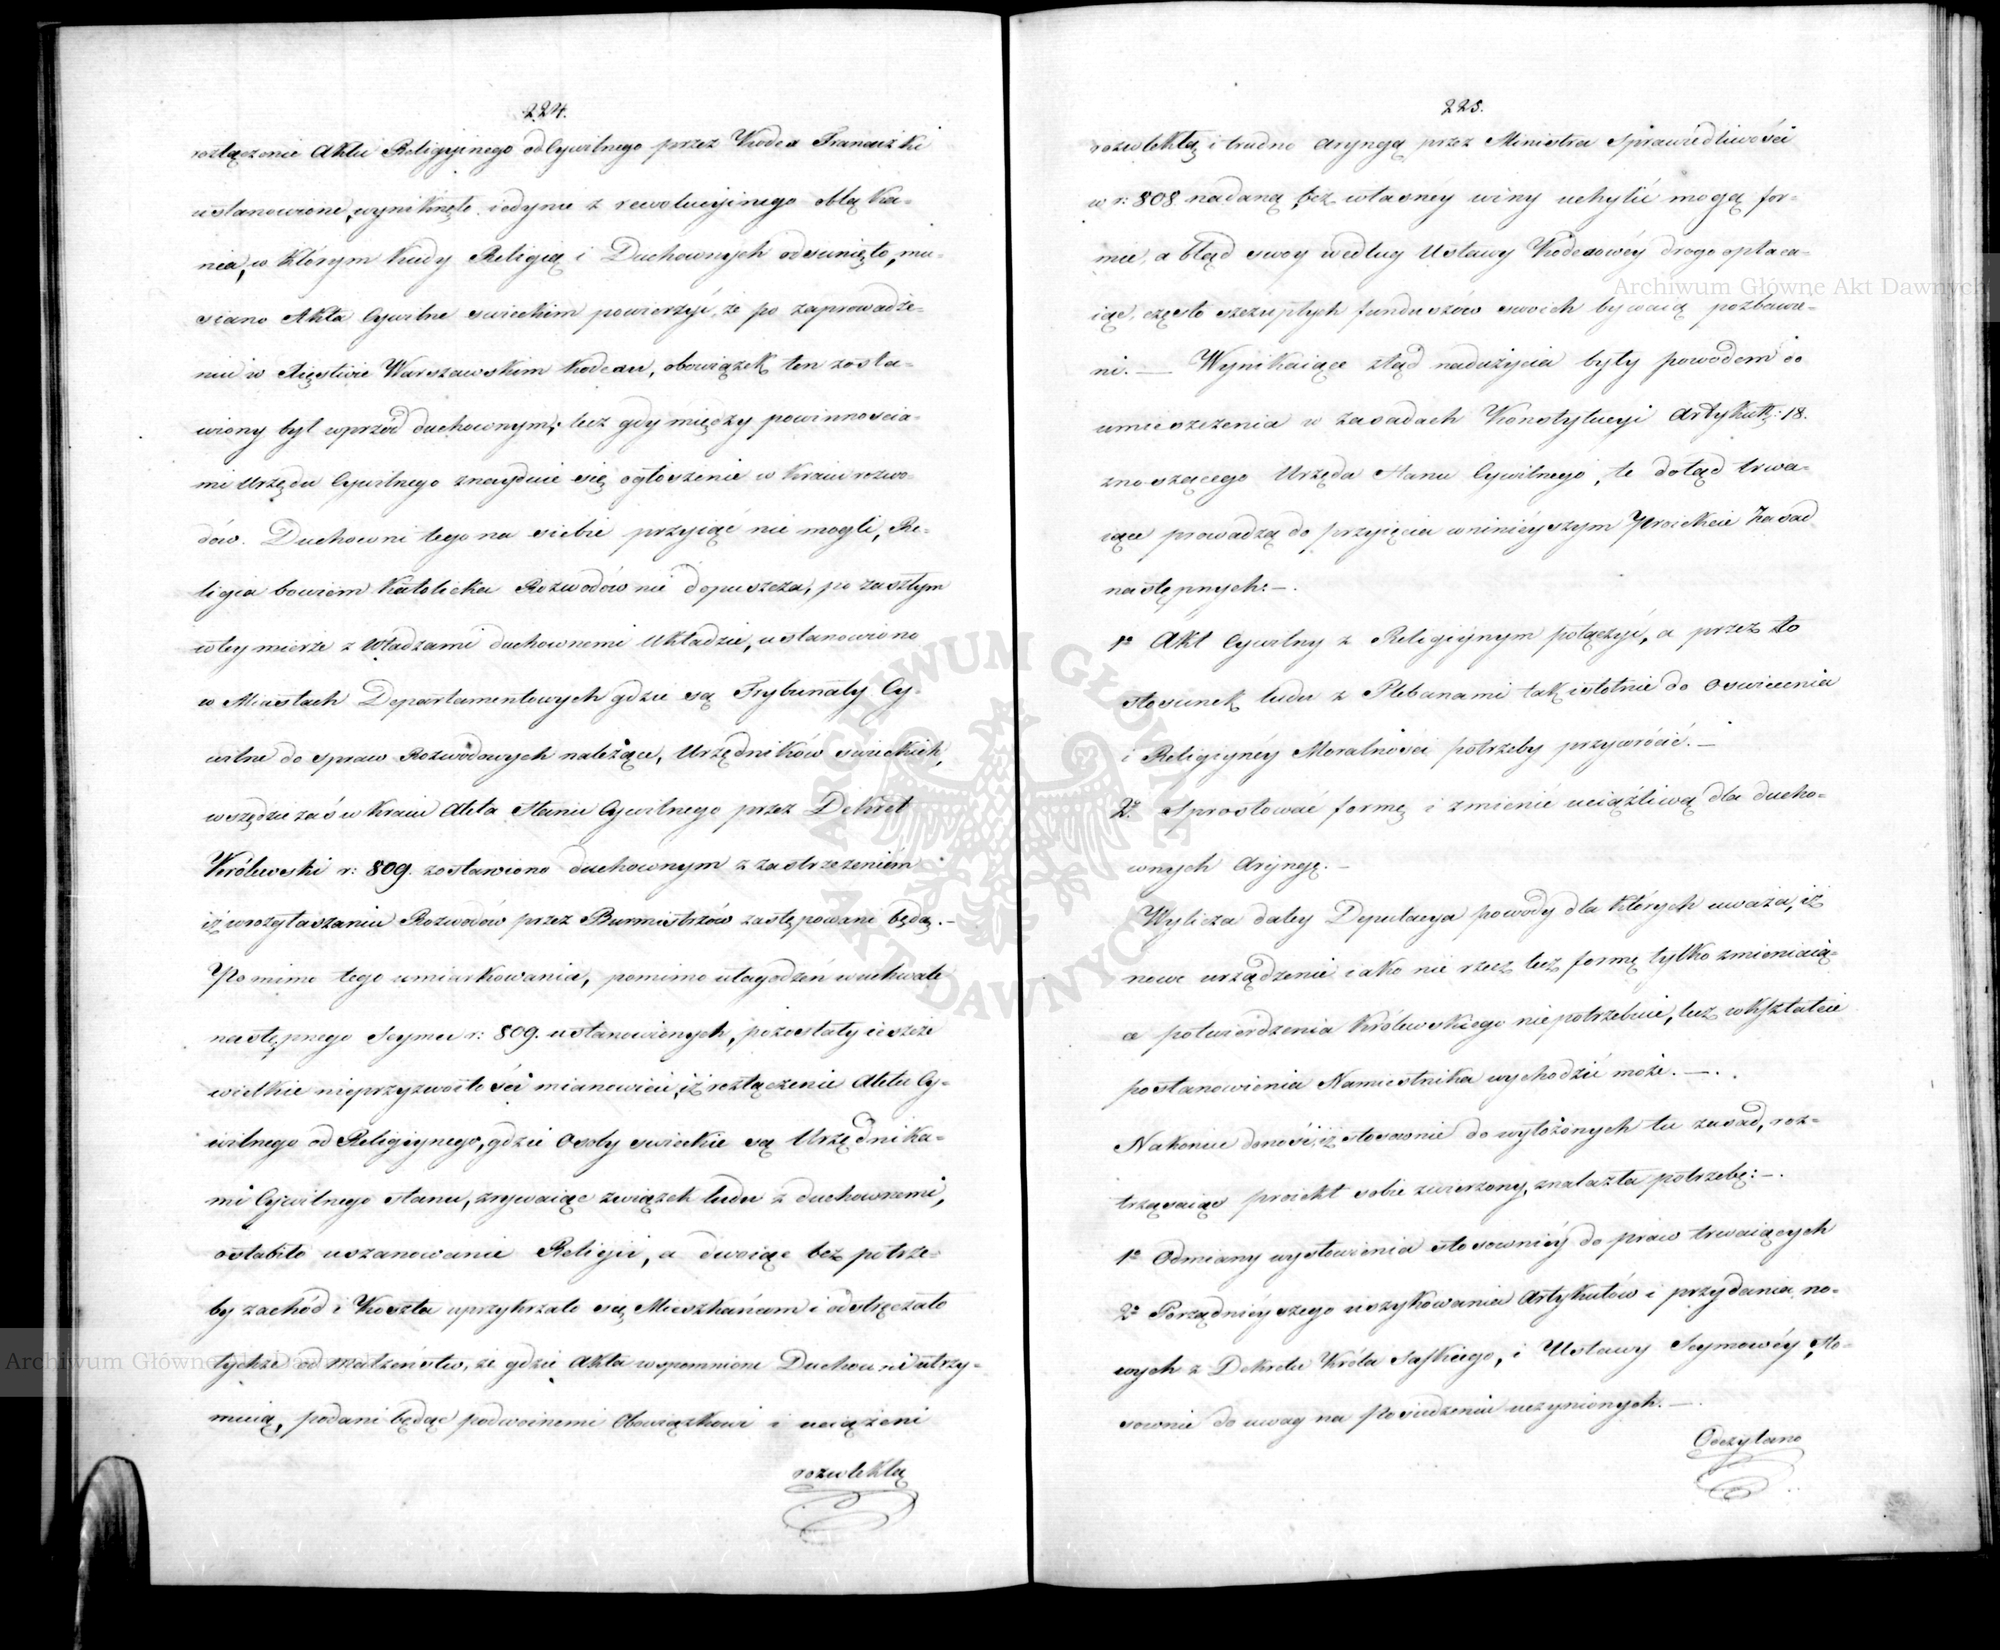 224.
rozłączenie Aktu Religijnego od Cywilnego przez Kodex Francuzki
ustanowione, wyniknęło iedynie z rewolucyjnego obłąka-
nia, w którym kiedy Religią i Duchownych odsunięto, mu-
siano Akta Cywilne swieckim powierzyć, że po zaprowadze-
niu w Xięstwie Warszawskim Kodexu, obowiązek ten zosta-
wiony był wprzód duchownym; lecz gdy między powinnościa-
mi Urzędu Cywilnego znayduie się ogłoszenie w Kraiu rozwo-
dów. Duchowni tego na siebie przyiąć nie mogli, Re-
ligia bowiem Katolicka Rozwodów nie dopuszcza; po zaszłym
w tey mierze z Władzami duchownemi Układzie, ustanowiono
w Miastach Departamentowych gdzie są Trybunały Cy-
wilne do spraw Rozwodowych należące, Urzędników swieckich,
wszędzie zaś w Kraiu Akta Stanu Cywilnego przez Dekret
Królewski r: 809. zostawiono duchownym z zastrzeżeniem
iż w rozgłaszaniu Rozwodów przez Burmistrzów zastępowani będą. –
Pomimo tego umiarkowania, pomimo ułagodzeń w uchwale
następnego Seymu r: 809. ustanowionych, pozostały ieszcze
wielkie nieprzyzwoitości mianowicie, iż rozłączenie Aktu Cy-
wilnego od Religijnego, gdzie Osoby swieckie są Urzędnika-
mi Cywilnego stanu, zrywaiąc związek ludu z duchownemi,
osłabiło uszanowanie Religii, a dwoiąc bez potrze-
by zachód i Koszta uprzykrzało się Mieszkańcom i odstręczało
tychże od Małżeństw, że gdzie Akta wspomnione Duchowni utrzy-
muią, podani będąc podwoinemi Obowiązkowi i uciążeni
rozwlekłą
225.
rozwlekłą i trudno Aryngą przez Ministra Sprawiedliwości
w r: 808 nadaną bez własnéy winy uchylić mogą for-
mie, a błąd swoy według Ustawy Kodexowéy drogo opłaca-
iąc, często szczupłych funduszów swoich bywaią pozbawie-
ni. — Wynikaiące ztąd nadużycia były powodem do
umieszczenia w zasadach Konstytucyi Artykułu: 18.
znoszącego Urzęda Stanu Cywilnego, te dotąd trwa-
iące prowadzą do przyięcia w ninieyszym Proiekcie Zasad
następnych: –.
1o Akt Cywilny z Religiynym połączyć, a przez to
stosunek ludu z Plebanami tak istotnie do Oswiecenia
i Religiynéy Moralności potrzeby przywrócić. –
2o Sprostować formę i zmienić uciążliwą dla ducho-
wnych Aryngę. –
Wylicza daley Deputacya powody dla których uważa, iż
nowe urządzenie iako nie rzecz lecz formę tylko zmieniaią-
ce potwierdzenia Królewskiego niepotrzebuie, lecz w kształcie
postanowienia Namiestnika wychodzić może. —.
Nakoniec donosi, iż stosownie do wyłożonych tu zasad, roz-
trząsaiąc proiekt sobie zwierzony, znalazła potrzebę: –.
1o Odmiany wysłowienia stosownieÿ do praw trwaiących
2o Porządnieyszego uszykowania Artykułów i przydania no-
wych z Dekretu Króla Saskiego, i Ustawy Seymowéy, sto-
sownie do uwag na Posiedzeniu uczynionych. —.
Odczytano
Archiwum Główne Akt Dawnych
Archiwum Główne Akt Dawnych
ARCHIWUM GŁÓWNE AKT DAWNYCH